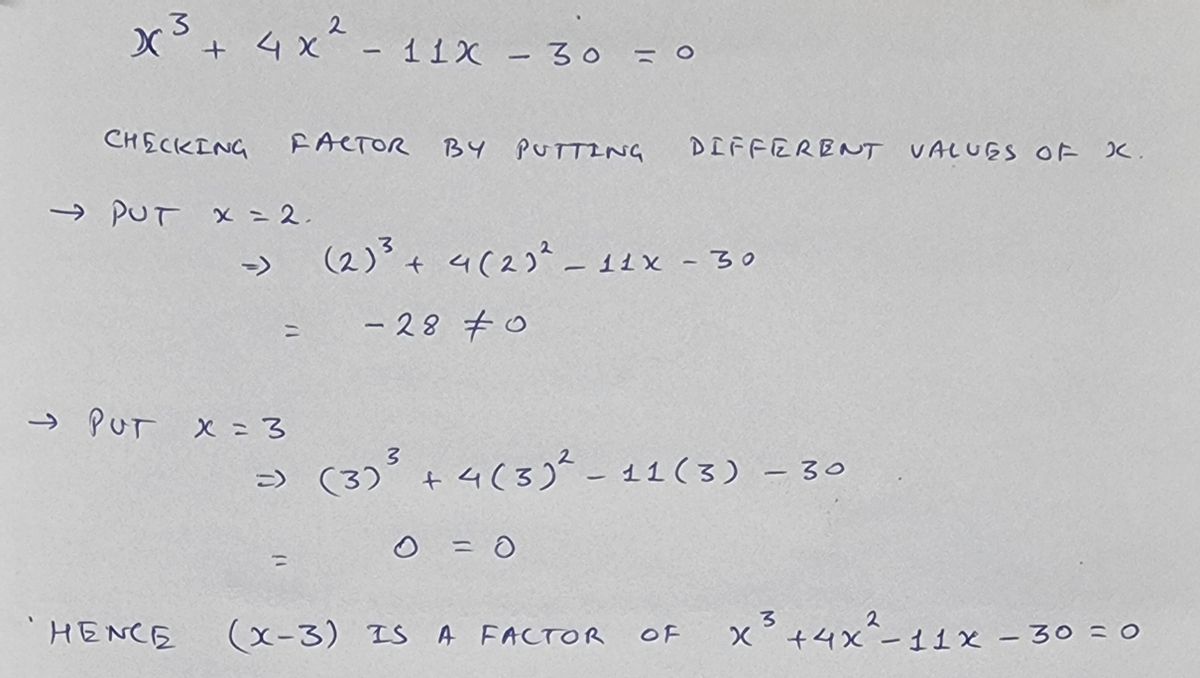 x³ + 4x² - 11x - 30 = 0
CHECKING FACTOR BY PUTTING DIFFERENT VALUES OF x.
→ PUT x = 2.
⇒ (2)³ + 4(2)² - 11x - 30
= -28 ≠ 0
→ PUT x = 3
⇒ (3)³ + 4(3)² - 11(3) - 30
= 0 = 0
HENCE (x-3) IS A FACTOR OF x³ + 4x² - 11x - 30 = 0